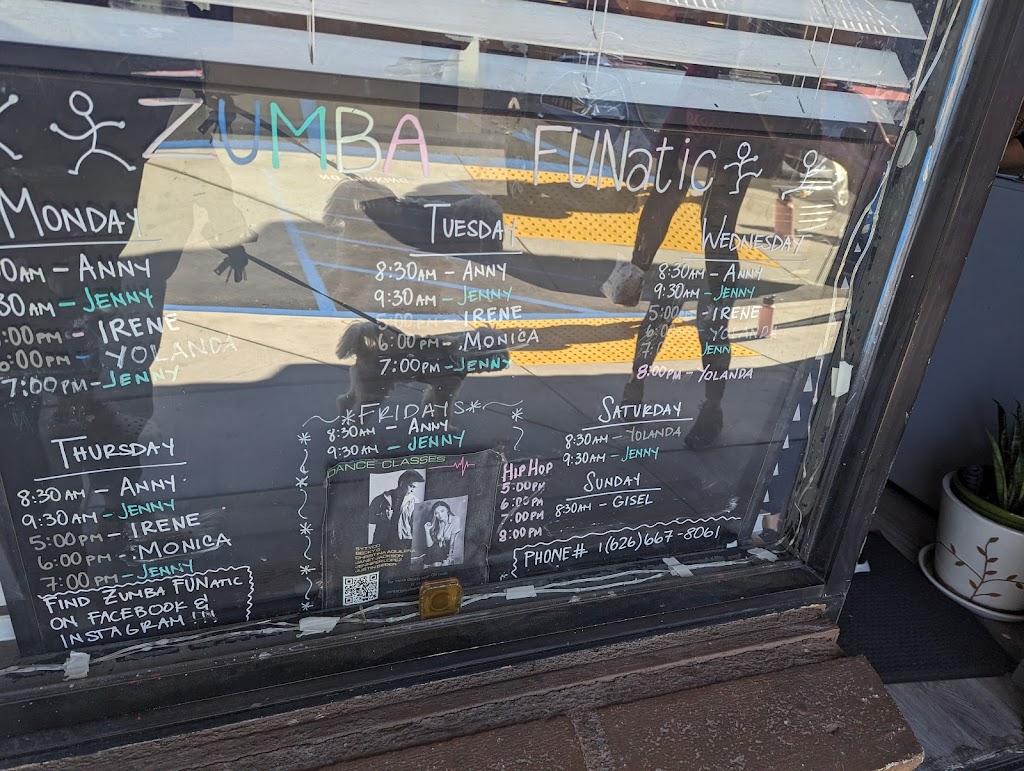 ZUMBA FUNatic
MONDAY
0AM - ANNY
30AM - JENNY
:00PM - IRENE
6:00PM - YOLANDA
7:00PM - JENNY
TUESDAY
8:30AM - ANNY
9:30AM - JENNY
5:00PM - IRENE
6:00PM - MONICA
7:00PM - JENNY
WEDNESDAY
8:30AM - ANNY
9:30AM - JENNY
5:00PM - IRENE
6:00PM - YOLANDA
JENNY
8:00PM - YOLANDA
THURSDAY
8:30AM - ANNY
9:30AM - JENNY
5:00PM - IRENE
6:00PM - MONICA
7:00PM - JENNY
FIND ZUMBA FUNATIC
ON FACEBOOK &
INSTAGRAM !!!
FRIDAYS
8:30AM - ANNY
9:30AM - JENNY
DANCE CLASSES
HIP HOP
5:00PM
6:00PM
7:00PM
8:00PM
SATURDAY
8:30AM - YOLANDA
9:30AM - JENNY
SUNDAY
8:30AM - GISEL
PHONE# 1(626)667-8061